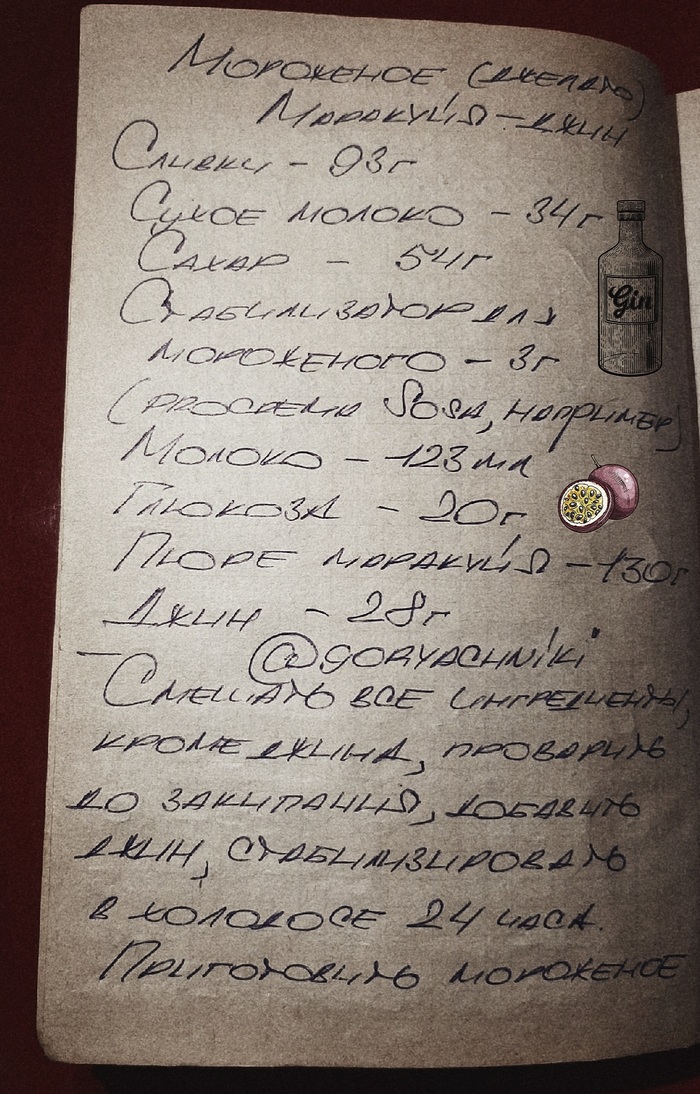 Мороженое (джелато)
Маракуйя-джин
Сливки - 93г
Сухое молоко - 34г
Сахар - 54г
Стабилизатор для
мороженого - 3г
(procrema Sosa, например)
Молоко - 123мл
Глюкоза - 20г
Пюре маракуйя - 130г
Джин - 28г
Gin
@goryachniki
Смешать все ингредиенты,
кроме джина, проварить
до закипания, добавить
джин, стабилизировать
в холодосе 24 часа.
Приготовить мороженое